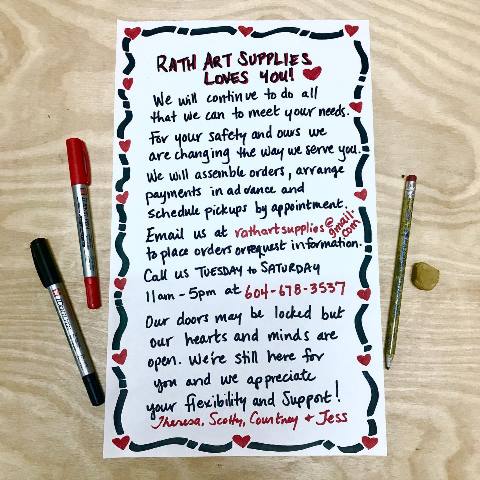 RATH ART SUPPLIES
LOVES YOU!
We will continue to do all
that we can to meet your needs.
For your safety and ours we
are changing the way we serve you.
We will assemble orders, arrange
payments in advance and
schedule pickups by appointment.
Email us at rathartsupplies@gmail.com
to place orders or request information.
Call us TUESDAY to SATURDAY
11am - 5pm at 604-678-3537
Our doors may be locked but
our hearts and minds are
open. We're still here for
you and we appreciate
your flexibility and Support!
Theresa, Scotty, Courtney + Jess